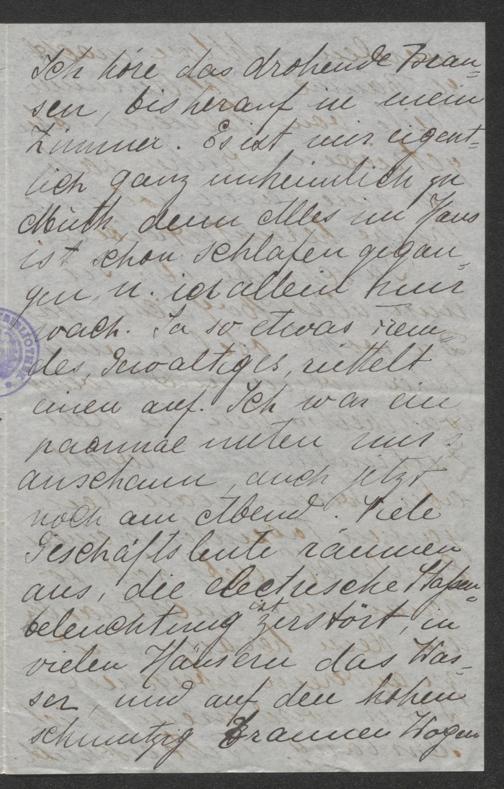 Ich höre das drohende Brau-
sen, bis herauf in mein
Zimmer. Es ist mir eigent-
lich ganz unheimlich zu
Muth, denn Alles im Haus
ist schon schlafen gegan-
gen, u. ich allein bin
wach. Ja so etwas Frem-
des, Gewaltiges rüttelt
einen auf. Ich war ein
paarmal unten mir's
anschaun, auch jetzt
noch am Abend. Viele
Geschäftsleute räumen
aus, die electrische
beleuchtung ist zerstört, in
vielen Häusern das Was-
ser, und auf den hohen
schmutzig braunen Wogen